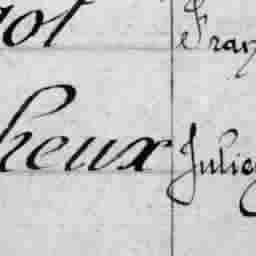 got Fran
heux Julie